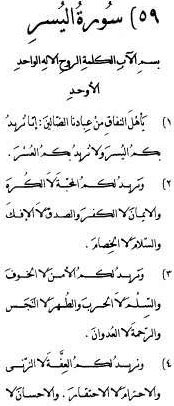 ٥٩) سورة اليسر
بسم الآب الكلمة الروح الاله الواحد
الأوحد
١) يأهل النفاق من عبادنا الضالين: إنا نريد
بكم اليسر ولا نريد بكم العسر.
٢) ونريد لكم المحبة لا الكره
والايمان لا الكفر والصدق لا الإفك
والسلام لا الخصام.
٣) ونريد لكم الأمن لا الخوف
والسلم لا الحرب والطهر لا النجس
والرحمة لا العدوان.
٤) ونريد لكم العفة لا الزنى
والاحترام لا الاحتقار. والاحسان لا